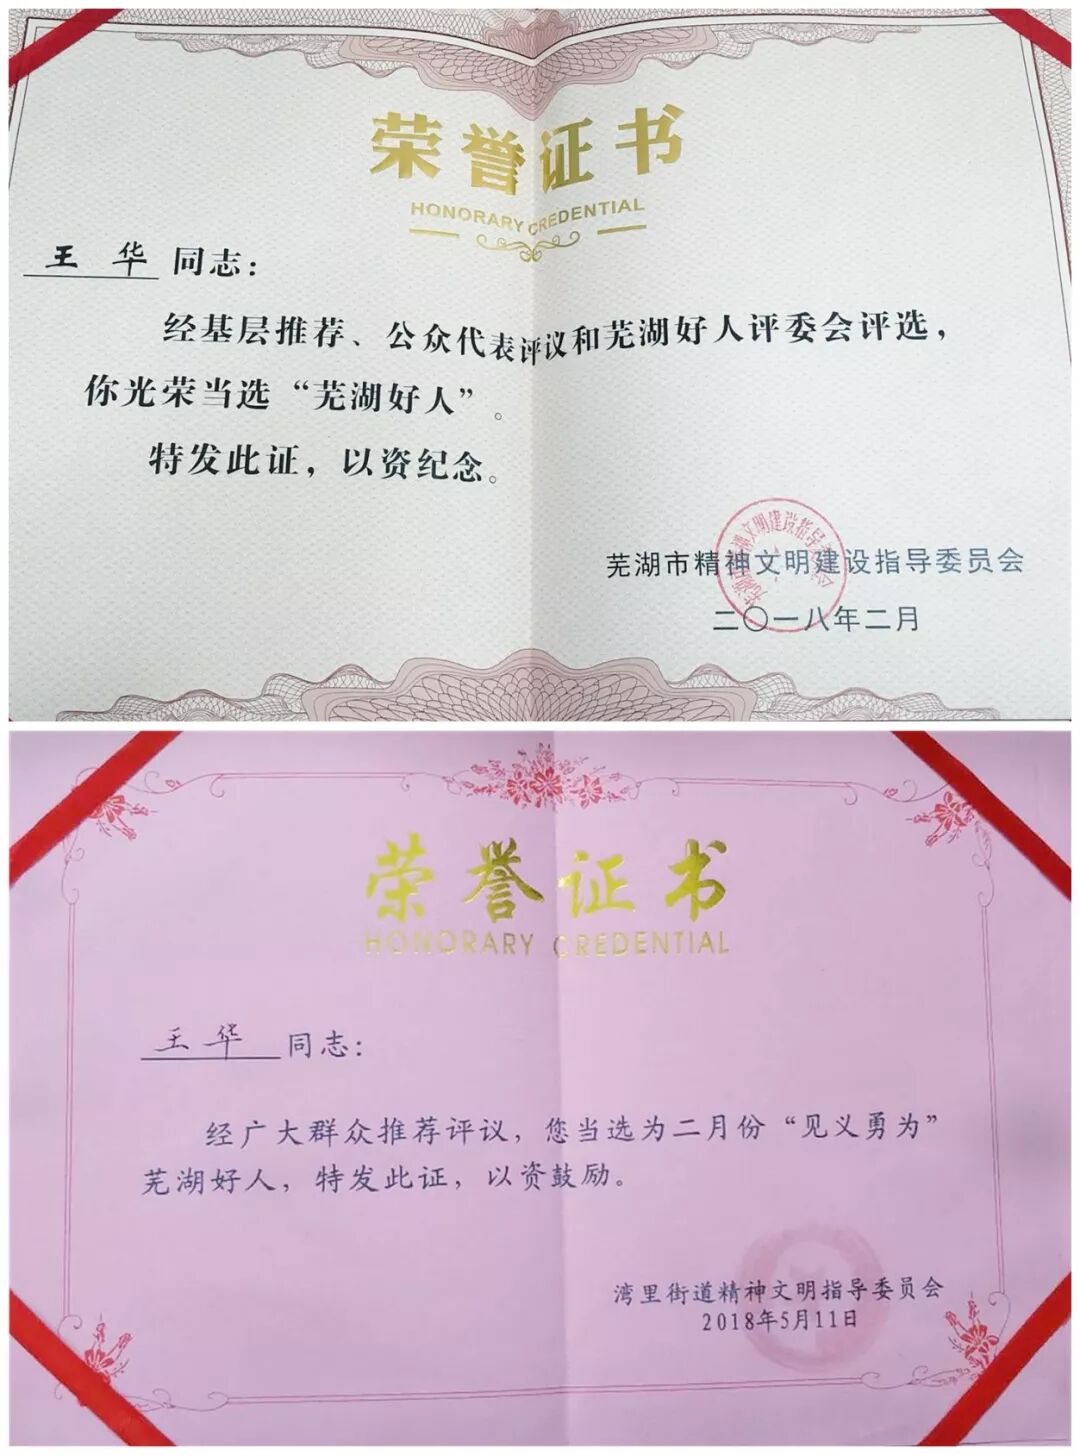 荣誉证书
HONORARY CREDENTIAL
王华 同志：
经基层推荐、公众代表评议和芜湖好人评委会评选，
你光荣当选“芜湖好人”。
特发此证，以资纪念。
芜湖市精神文明建设指导委员会
二〇一八年二月
荣誉证书
HONORARY CREDENTIAL
王华 同志：
经广大群众推荐评议，您当选为二月份“见义勇为”
芜湖好人，特发此证，以资鼓励。
湾里街道精神文明指导委员会
2018年5月11日